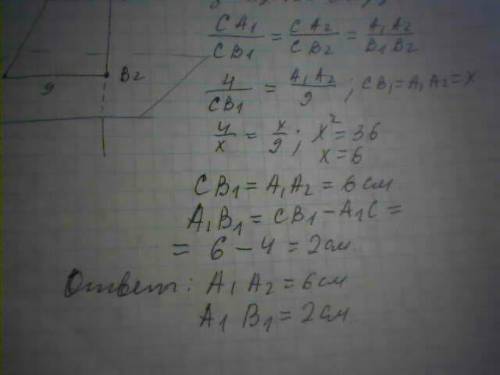 CA₁/CB₁ = CA₂/CB₂ = A₁A₂/B₁B₂
B₂
9
4/CB₁ = A₁A₂/9 ; CB₁ = A₁A₂ = x
4/x = x/9 ; x² = 36
x = 6
CB₁ = A₁A₂ = 6 см
A₁B₁ = CB₁ - A₁C =
= 6 - 4 = 2 см
Ответ: A₁A₂ = 6 см
A₁B₁ = 2 см